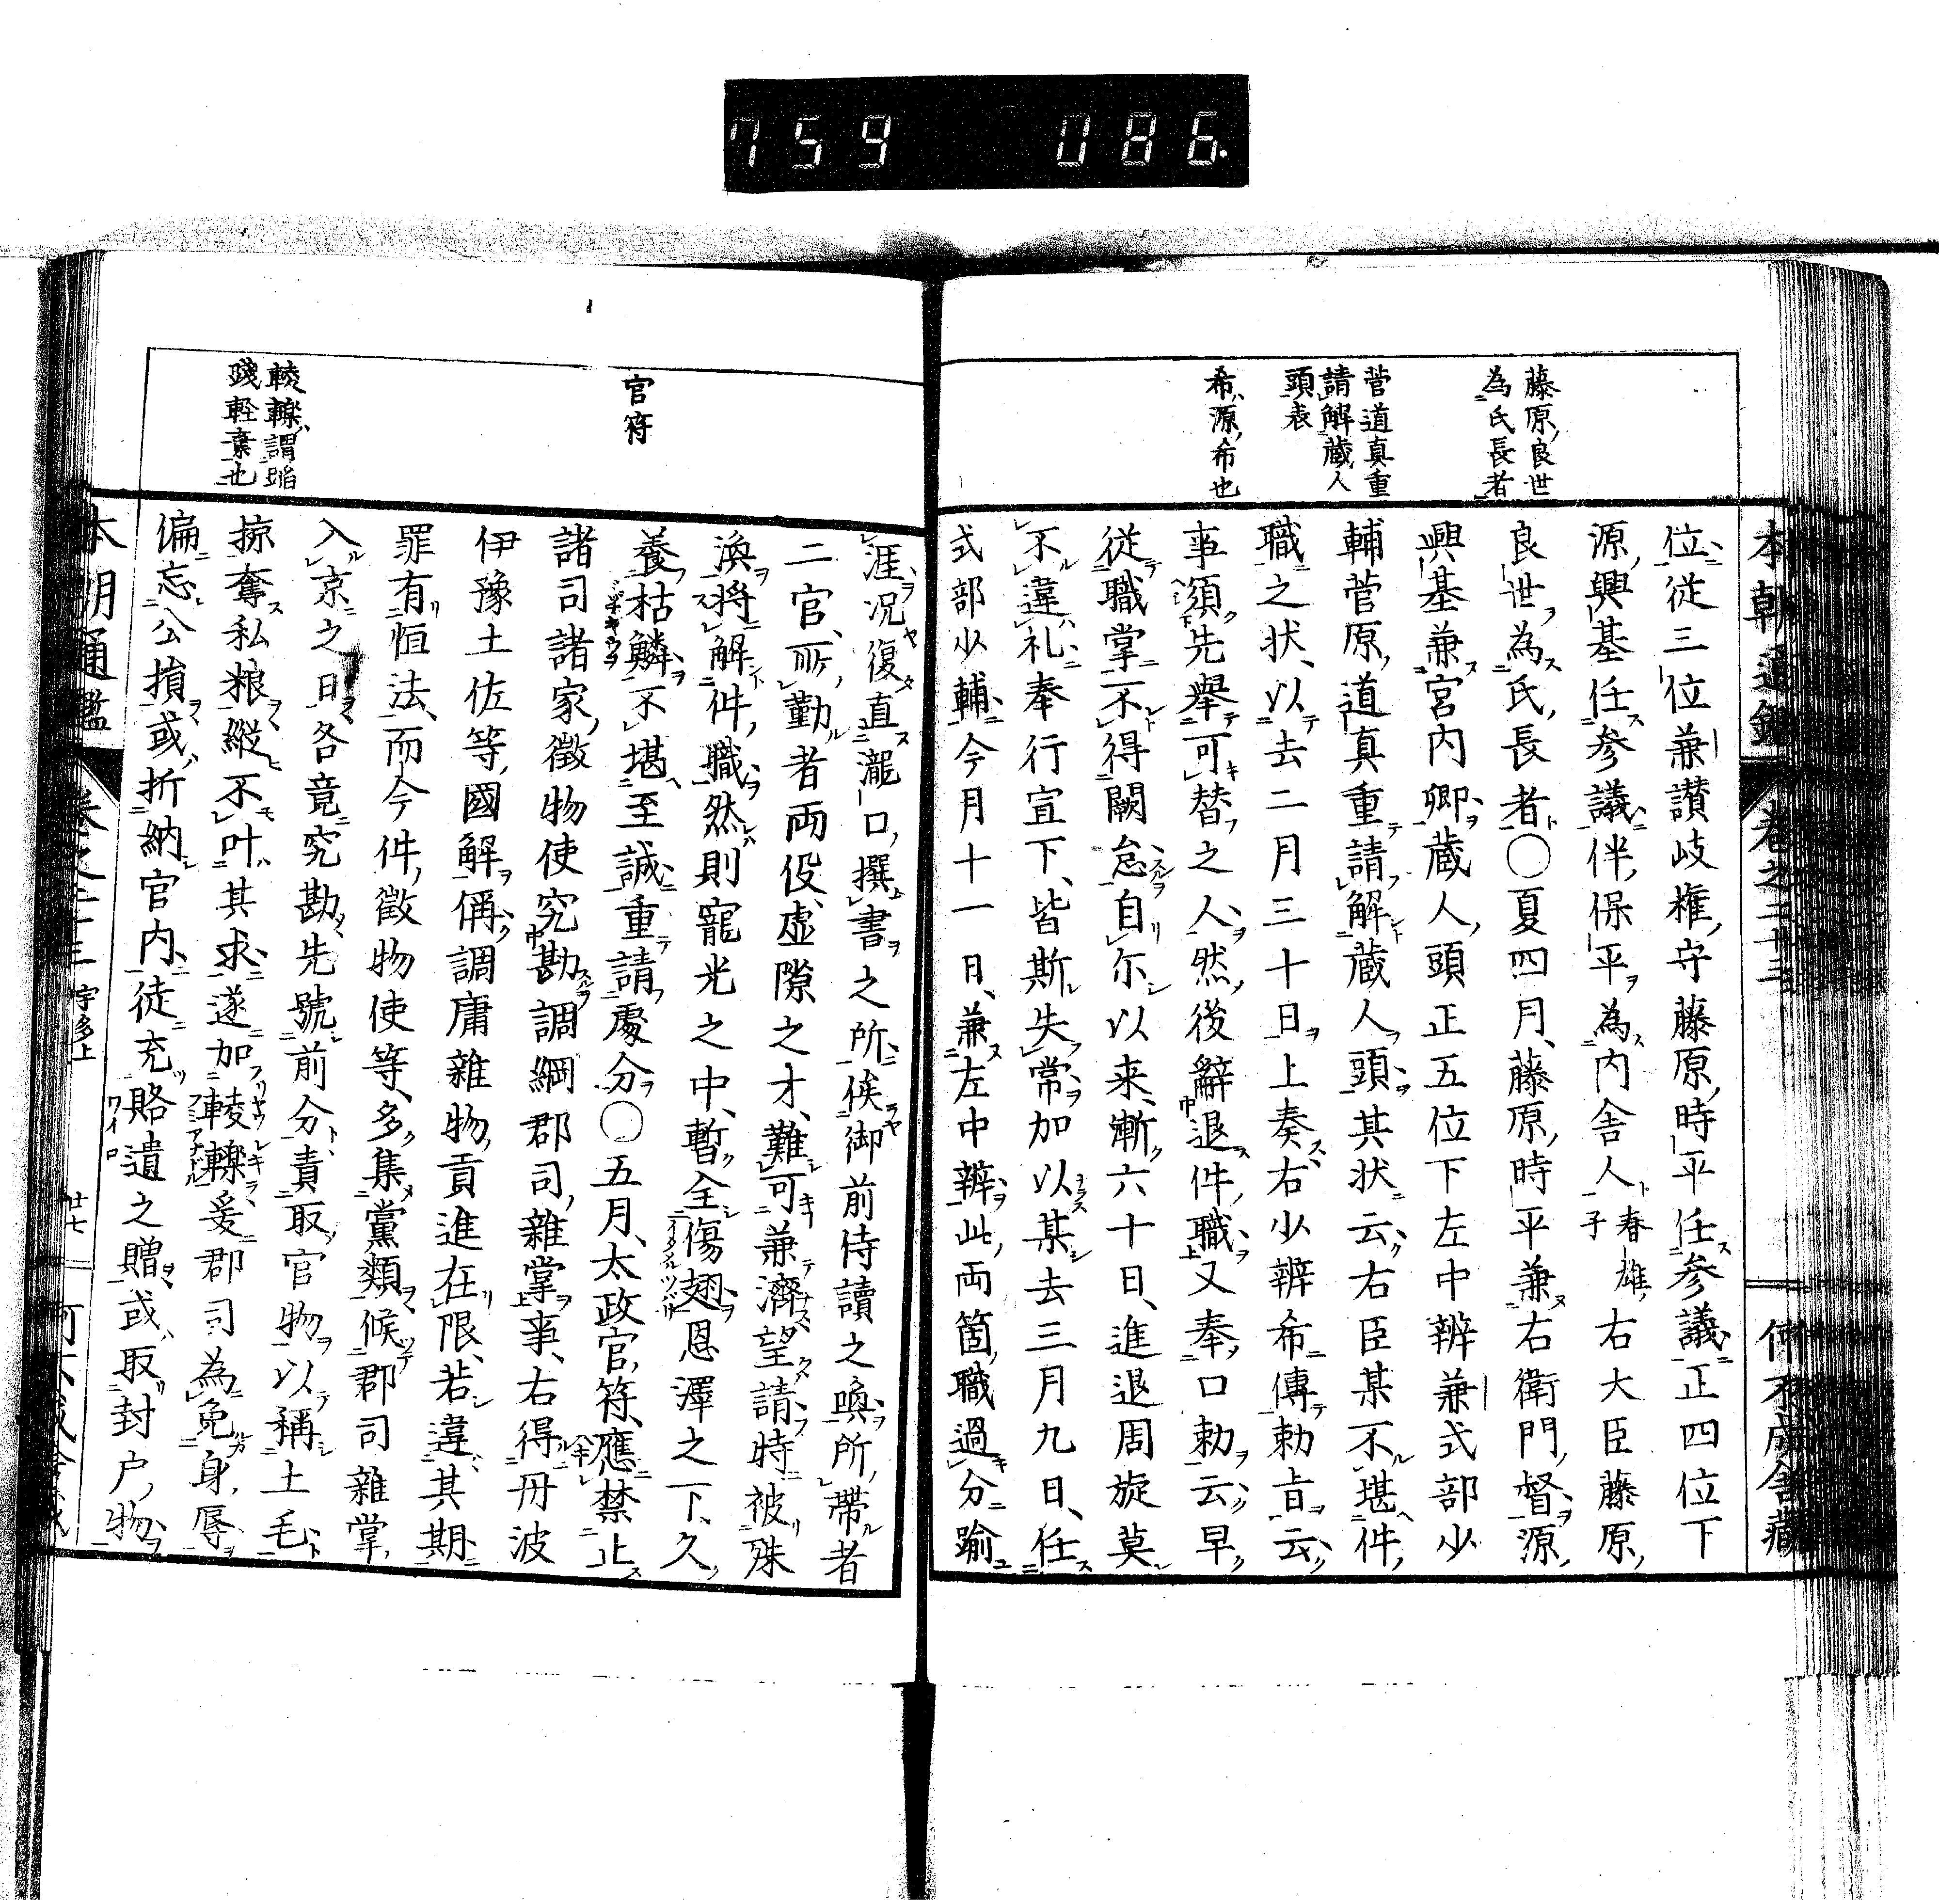 759 086.
本朝通鑑 巻之二十三 何不成舎蔵
藤原良世
為氏長者
菅道真重
請解蔵人
頭表
希源希也
位從三位兼讃岐権守藤原時平任参議正四位下
源興基任参議伴保平為内舎人春雄子右大臣藤原
良世為氏長者〇夏四月藤原時平兼右衛門督源
興基兼宮内卿蔵人頭正五位下左中辨兼式部少
輔菅原道真重請解蔵人頭其状云右臣某不堪件
職之状以去二月三十日上奏右少辨希傳勅旨云
事須先舉可替之人然後辭退件職又奉口勅云早
從職掌不得闕怠自尓以来漸六十日進退周旋莫
不違礼奉行宣下皆斯失常加以某去三月九日任
式部少輔今月十一日兼左中辨此両箇職過分踰
官符
轅轢謂蹈
踐軽棄也
涯况復直瀧口撰書之所候御前侍讀之喚所帶者
二官所勤者両役虚隙之才難可兼濟望請時被殊
渙将解件職然則寵光之中暫全傷翅恩澤之下久
養枯鱗不堪至誠重請處分〇五月太政官符應禁止
諸司諸家徵物使究勘調綱郡司雜掌事右得丹波
伊豫土佐等國解偁調庸雜物貢進在限若違其期
罪有恒法而今件徵物使等多集黨類候郡司雜掌
入京之日各竟究勘先號前分責取官物以稱土毛
掠奪私粮縱不叶其求遂加轅轢爰郡司為免身辱
偏忘公損或折納官内徒充賂遺之贈或取封戸物
本朝通鑑 巻之二十三 宇多上 廿七 何不成舎蔵